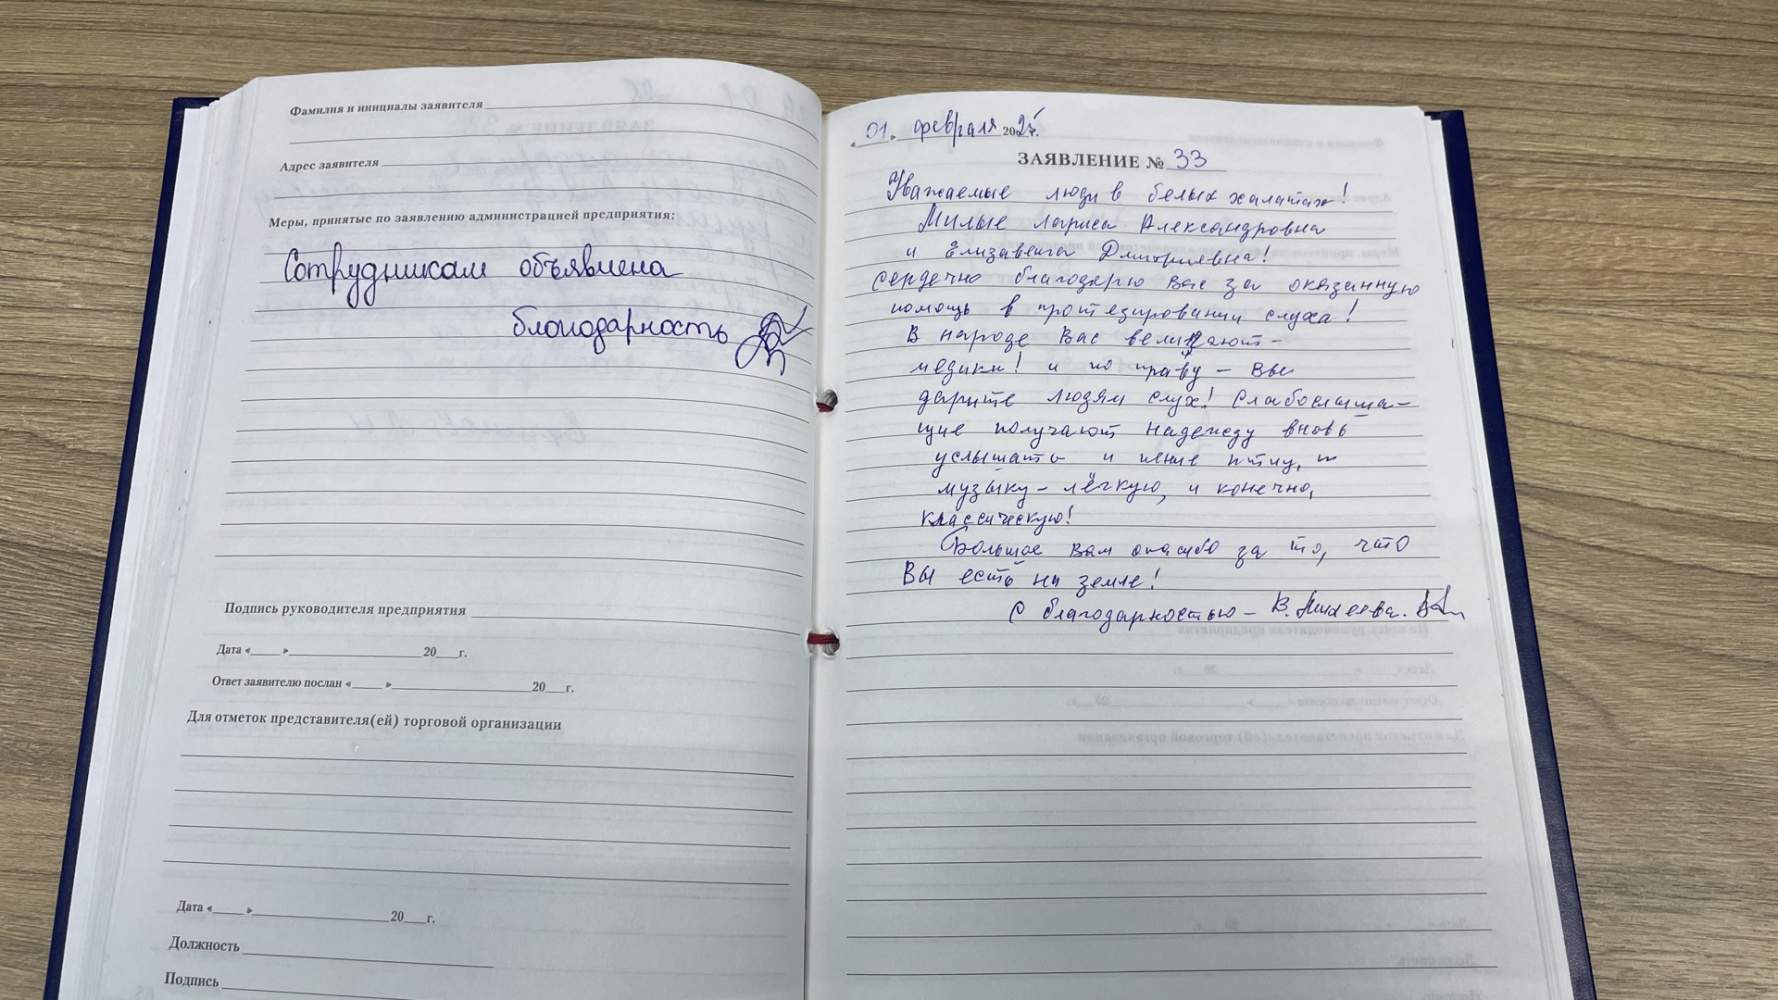 Фамилия и инициалы заявителя
Адрес заявителя
Меры, принятые по заявлению администрацией предприятия:
Сотрудникам объявлена
благодарность
Подпись руководителя предприятия
Дата «___» ___ 20___г.
Ответ заявителю послан «___» ___ 20___г.
Для отметок представителя(ей) торговой организации
Дата «___» ___ 20___г.
Должность
Подпись
«01» февраля 2025г.
ЗАЯВЛЕНИЕ № 33
Уважаемые люди в белых халатах!
Милые Лариса Александровна
и Елизавета Дмитриевна!
Сердечно благодарю Вас за оказанную
помощь в протезировании слуха!
В народе Вас величают –
медики! и по праву – Вы
дарите людям слух! Слабослыша-
щие получают надежду вновь
услышать и пение птиц, и
музыку – лёгкую, и конечно,
классическую!
Большое Вам спасибо за то, что
Вы есть на земле!
С благодарностью – В. Михеева.